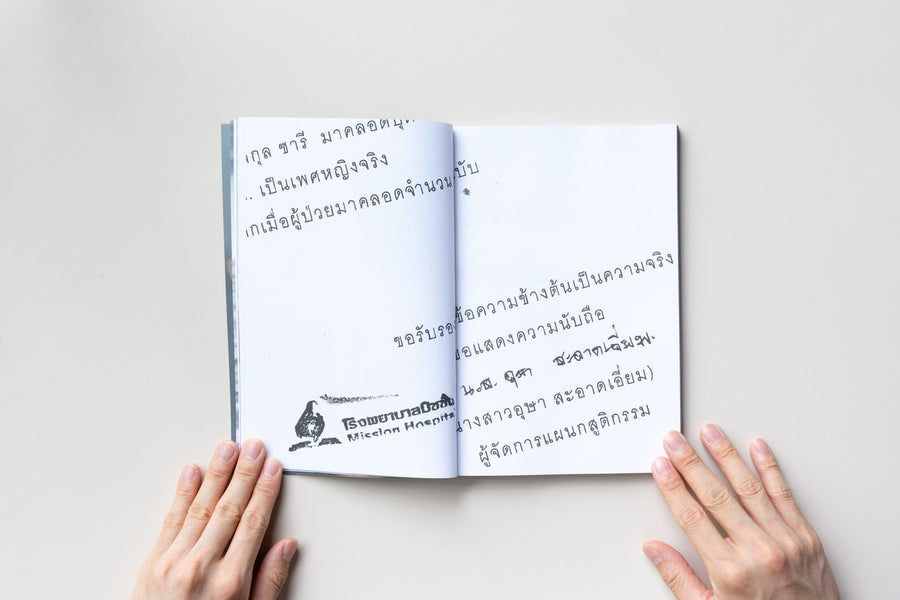 กุล ซารี มาคลอดบุต
.. เป็นเพศหญิงจริง
กเมื่อผู้ป่วยมาคลอดจำนวน
ฉบับ
ขอรับรองข้อความข้างต้นเป็นความจริง
ขอแสดงความนับถือ
น.ส. อุษา สะอาดเอี่ยม
นางสาวอุษา สะอาดเอี่ยม)
ผู้จัดการแผนกสูติกรรม
โรงพยาบาลมิชชั่น
Mission Hospital